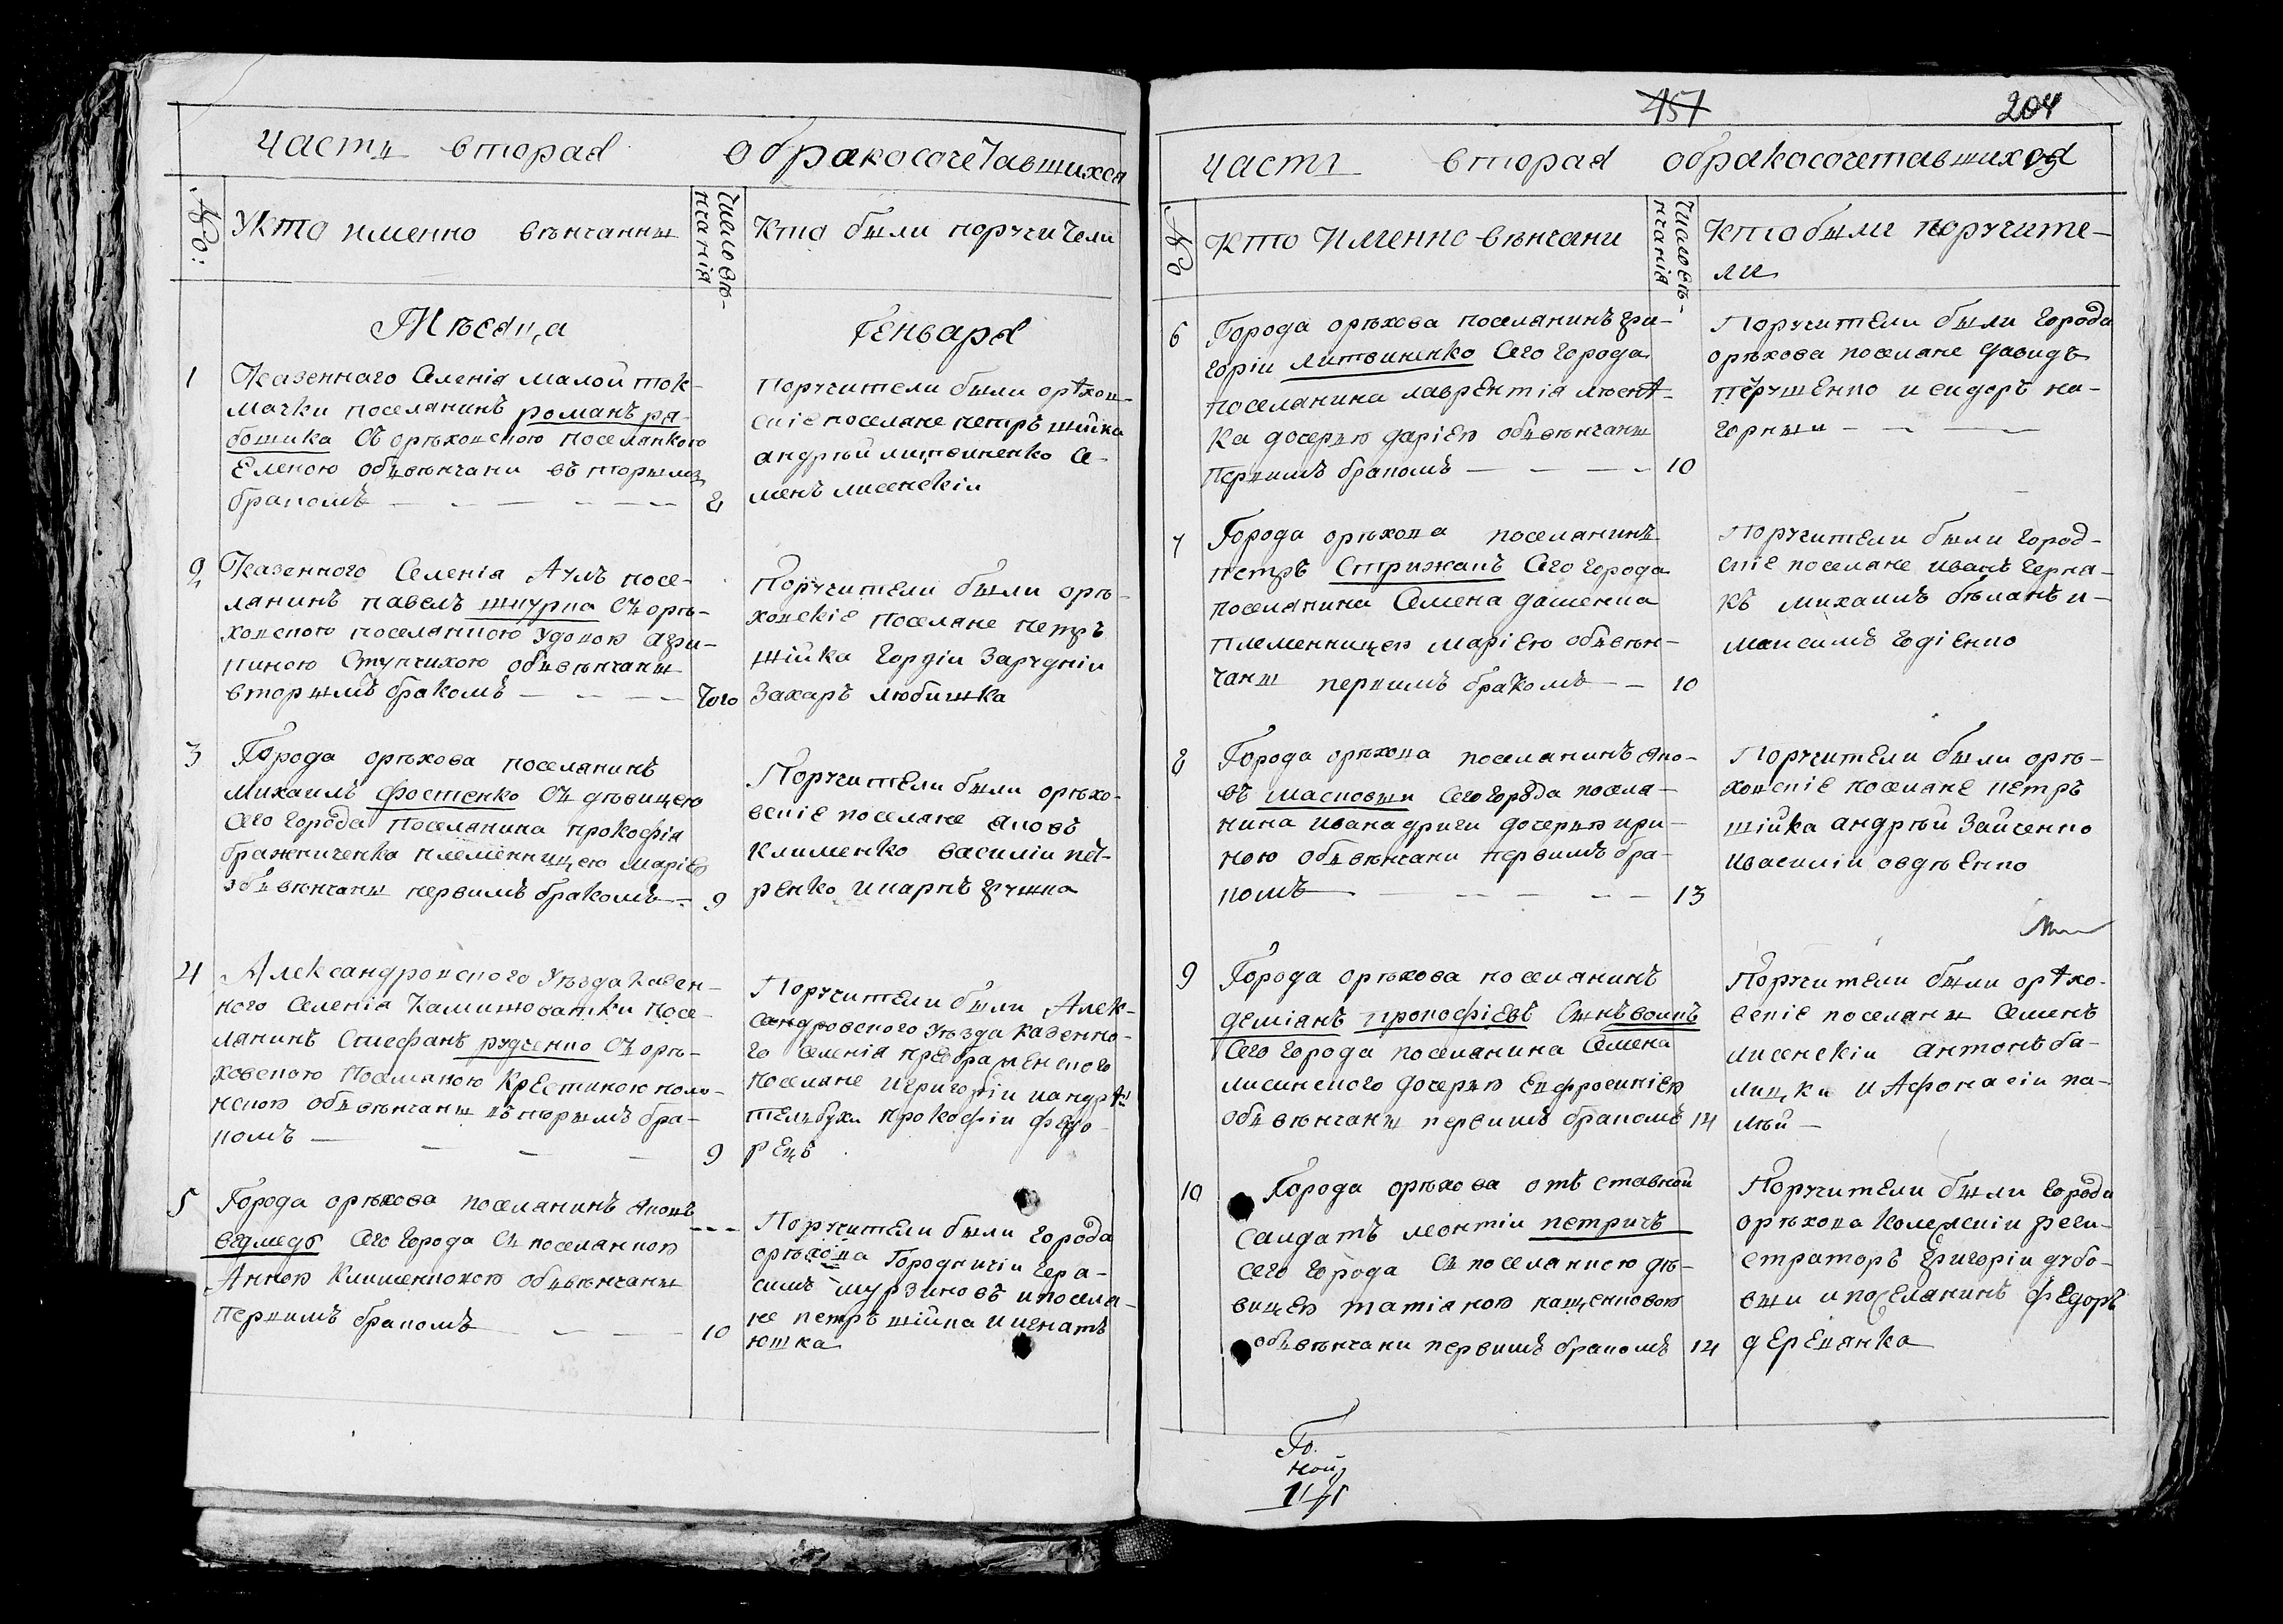 часть вторая обракосочетавшихся
№: Укто именно венчанны
Число вѣнчанія
Кто были поручители
Мѣсяца Генваря
1 Казенного Селенія малой ток-
мачки поселянинъ романъ ря-
бошика Съ орѣховскою поселянкою
Еленою обвѣнчани вторымъ
бракомъ 2
Поручители были орѣхов-
скіе поселяне петръ шійка
андрѣй литвиненко Се-
менъ лисенскіи
2 Казенного Селенія Аулъ посе-
лянинъ павелъ шкурка Съ орѣ-
ховскою поселянкою удовою агри-
пиною Ступчихою обвѣнчаны
вторымъ бракомъ того
Поручители были орѣ-
ховскіе поселяне петръ
шійка Гордіи Заруднiи
Захаръ любишка
3 Города орѣхова поселянинъ
Михаилъ фостенко Съ дѣвицею
сего города поселянина прокофія
бражниченка племенницею маріею
обвѣнчаны первимъ бракомъ 9
Поручители были орѣхо-
вскіе поселяне яковъ
клименко василіи пет-
ренко и карпъ грушка
4 Александровского Уѣзда казен-
ного Селенія Камишоватки посе-
лянинъ Стефанъ рудченко Съ орѣ-
ховскою поселянкою Крестиною
обвѣнчаны вторымъ бра-
комъ 9
Поручители были Алек-
сандровского уѣзда казенно-
го селенія преображенского
поселяне Григоріи
прокофіи федо-
рецъ
5 Города орѣхова поселянинъ яковъ
ведмедъ Сего города съ поселянкою
Анною Клименковою обвѣнчаны
первимъ бракомъ 10
Поручители были города
орѣхова Городничіи Гера-
симъ мурзиновъ и поселя-
не петръ шійка и игнатъ
юшка
457 204
часть вторая обракосочетавшихся
№ кто именно вѣнчани
Число вѣнчанія
Кто были поручите-
ли
6 Города орѣхова поселянинъ гри-
горіи литвиненко Сего города
поселянина лаврентія
ка дочерью даріею обвѣнчаны
первимъ бракомъ 10
Поручители были города
орѣхова поселяне давидъ
перушенко и сидоръ на-
горныи
7 Города орѣхова поселянинъ
петръ Стрижакъ Сего города
поселянина Семена дашенка
племенницею маріею обвѣн-
чаны первимъ бракомъ 10
Поручители были город-
скіе поселяне иванъ черня-
къ михаилъ бѣланъ и
максимъ годіенко
8 Города орѣхова поселянинъ яко-
въ масковыи сего города поселя-
нина ивана дриги дочерью ири-
ною обвѣнчани первимъ бра-
комъ 13
Поручители были орѣ-
ховскіе поселяне петръ
шійка андрѣй Зайченко
и василіи овдѣенко
9 Города орѣхова поселянинъ
деміанъ прокофіевъ Сынъ
Сего города поселянина Семена
лисинского дочерью Ефросиніею
обвѣнчаны первимъ бракомъ 14
Поручители были орѣхо-
вскіе поселяны Семенъ
лисенскіи антонъ ба-
лицки и Афонасіи па-
лѣй
10 Города орѣхова отъставной
салдатъ леонтіи петричъ
сего города съ поселянкою дѣ-
вицею татіаною кащенковою
обвѣнчани первимъ бракомъ 14
Поручители были города
орѣхова колежскіи реги-
страторъ григоріи дубо-
выи и поселянинъ федоръ
деревянка